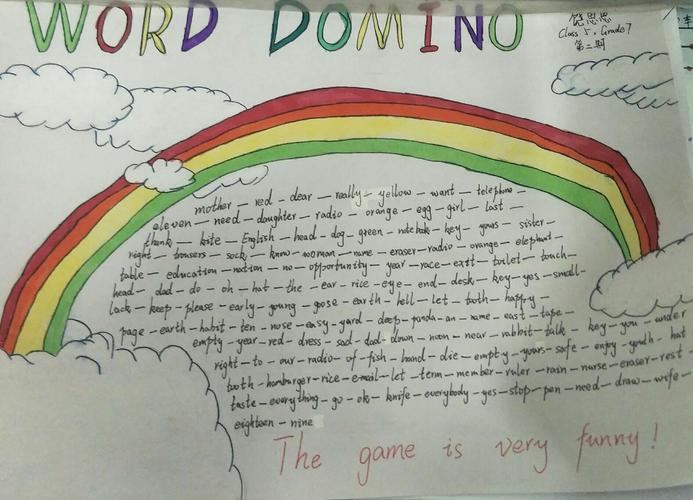 WORD DOMINO
饶思思
Class 5, Grade 7
第二期
mother – red – dear – really – yellow – want – telephone –
eleven – need – daughter – radio – orange – egg – girl – last –
thank – kite – English – head – dog – green – notebook – key – yours – sister –
right – trousers – sock – know – woman – name – eraser – radio – orange – elephant –
table – education – nation – no – opportunity – year – race – east – toilet – touch –
head – dad – do – oh – hat – the – ear – rice – eye – end – desk – key – yes – small –
lack – keep – please – early – young – goose – earth – hell – let – tooth – happy –
page – earth – habit – ten – nose – easy – yard – deep – panda – an – name – east – tape –
empty – year – red – dress – sad – dad – down – noon – near – rabbit – talk – key – you – under
right – to – our – radio – of – fish – hand – die – empty – yours – safe – enjoy – youth – hat
tooth – hamburger – rice – e-mail – let – term – member – ruler – rain – nurse – eraser – rest –
taste – everything – go – ok – knife – everybody – yes – stop – pen – need – draw – wife –
eighteen – nine
The game is very funny!